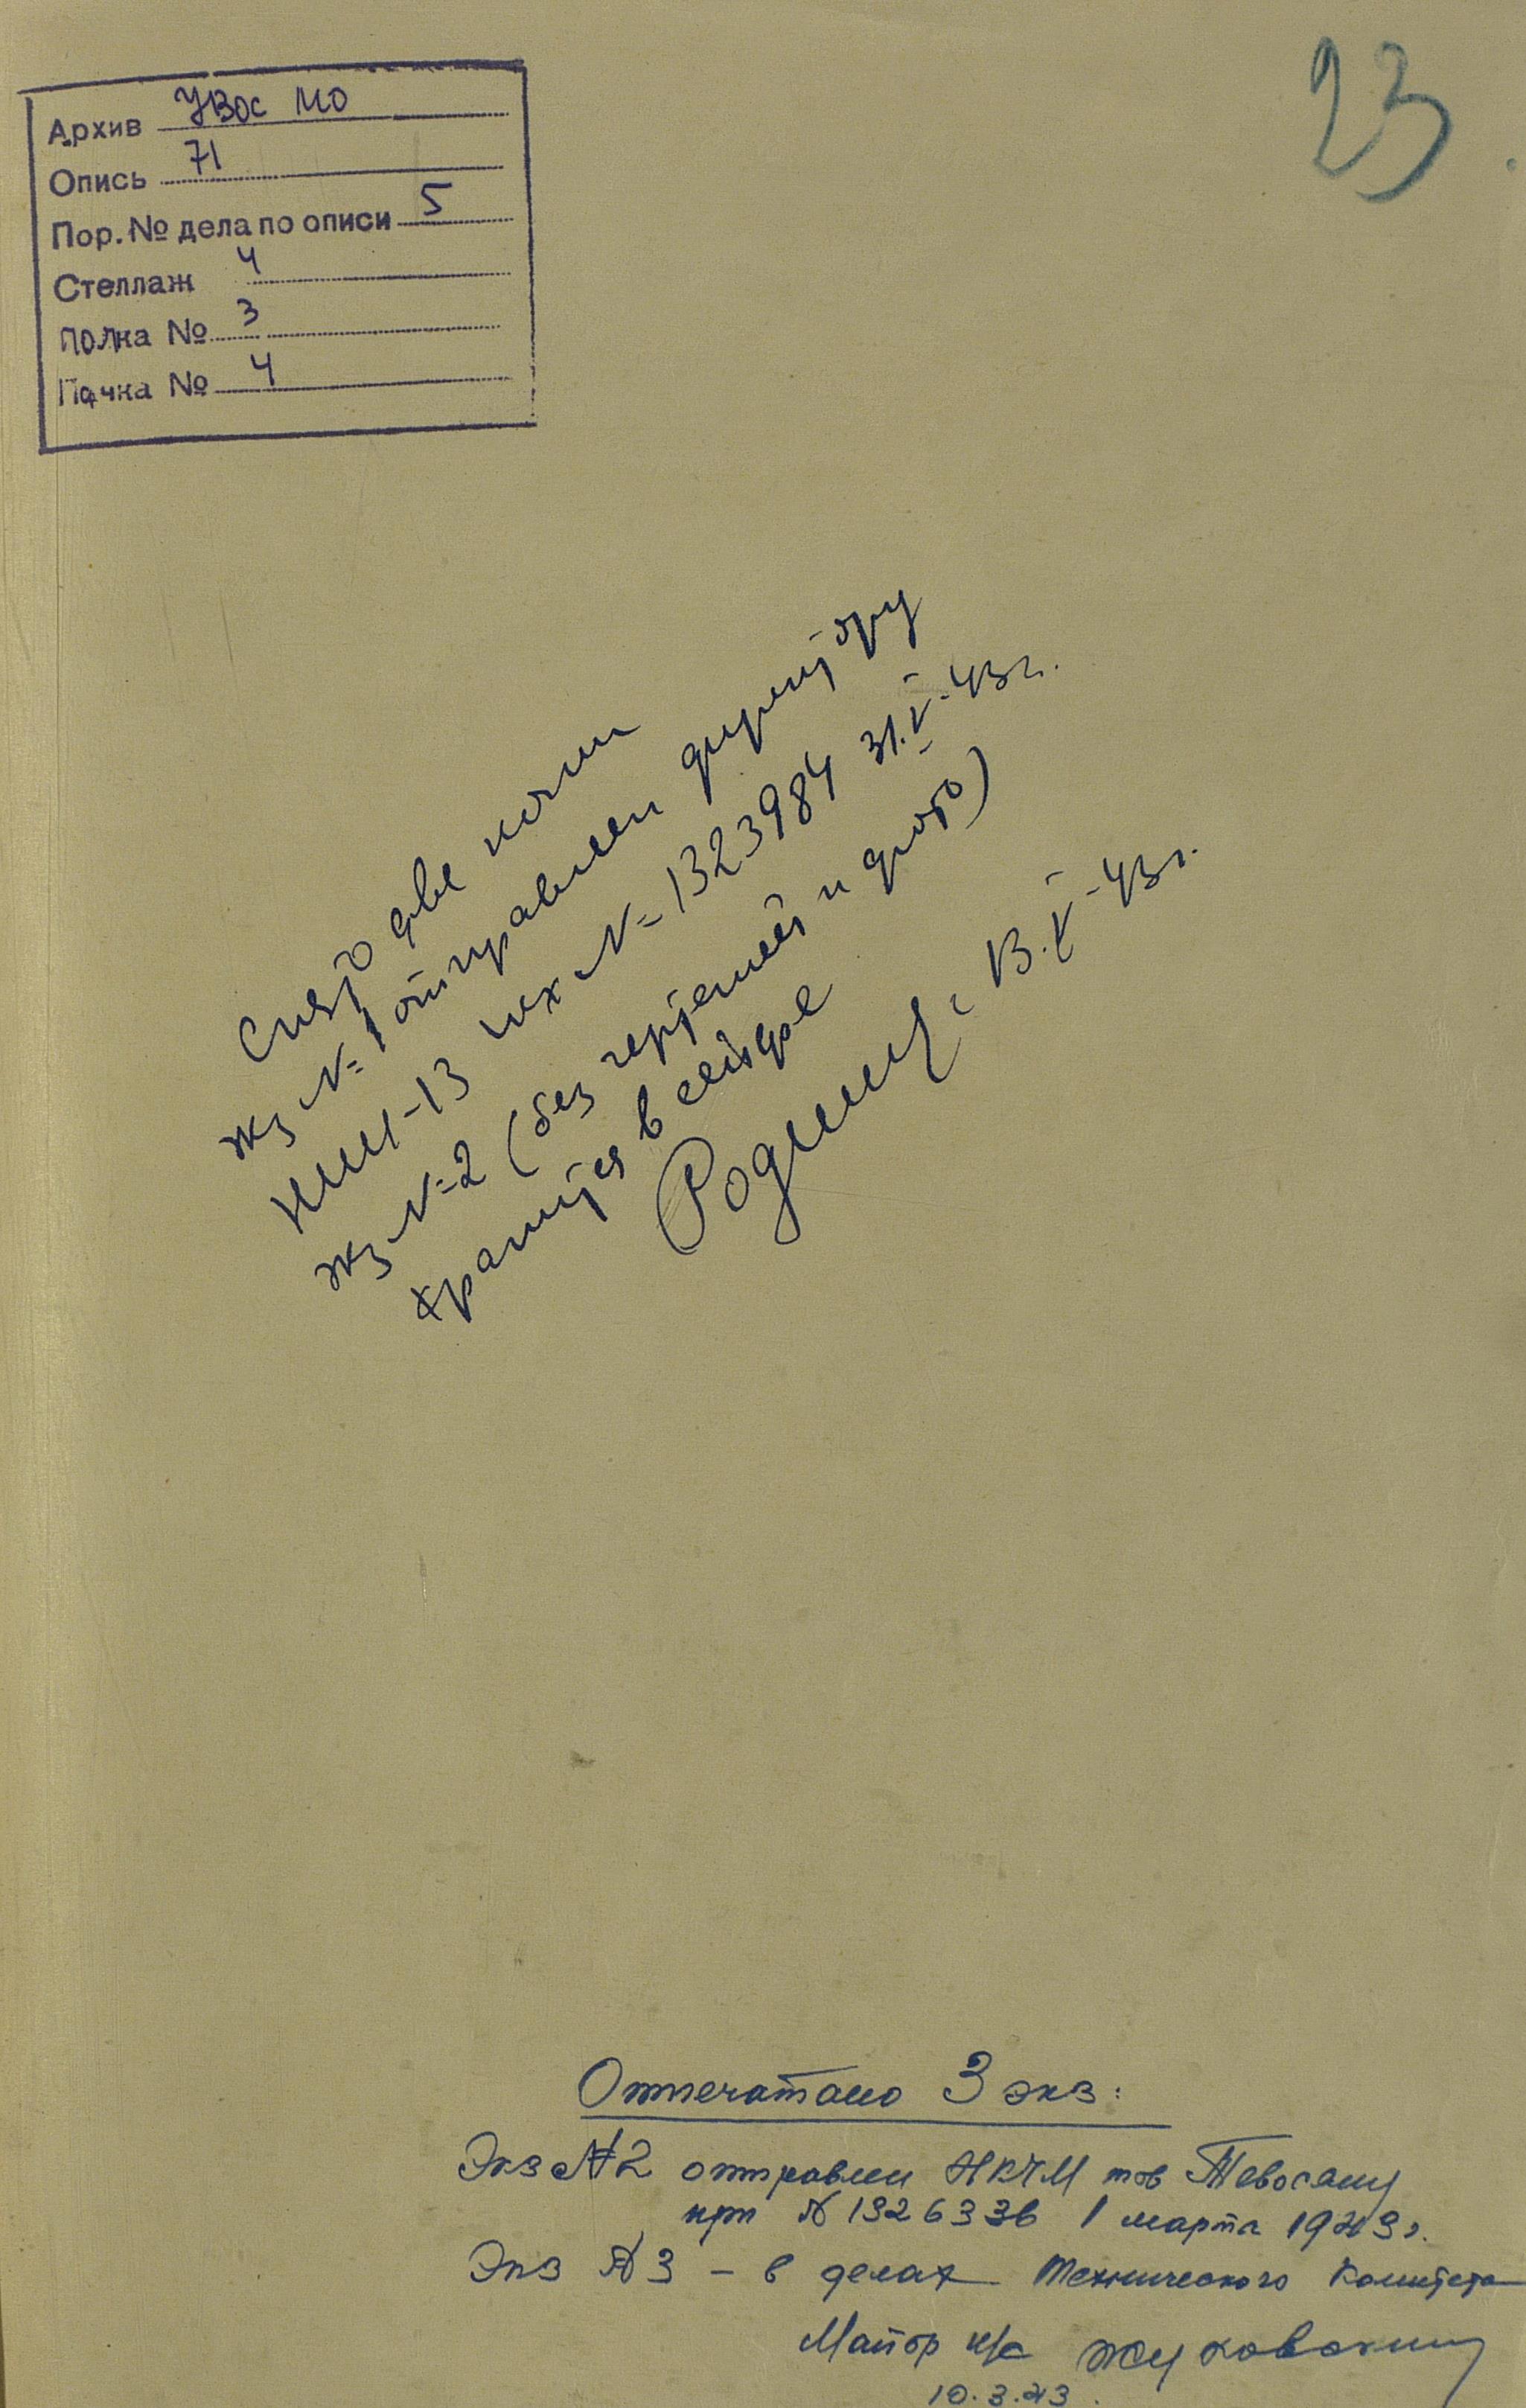 23
Архив УВОС МО
Опись 71
Пор. № дела по описи 5
Стеллаж 4
Полка № 3
Пачка № 4
Снято две копии
экз № 1 отправлен директору
НИИ-13 исх № 1323984 31.V-43г.
экз № 2 (без чертежей и фото)
хранится в сейфе
13.V-43г.
Отпечатано 3 экз:
Экз № 2 отправлен НКЧМ тов Тевосяну
при № 1326336 1 марта 1943г.
Экз № 3 – в делах Технического Комитета
Майор и/с Жуковский
10.3.43.